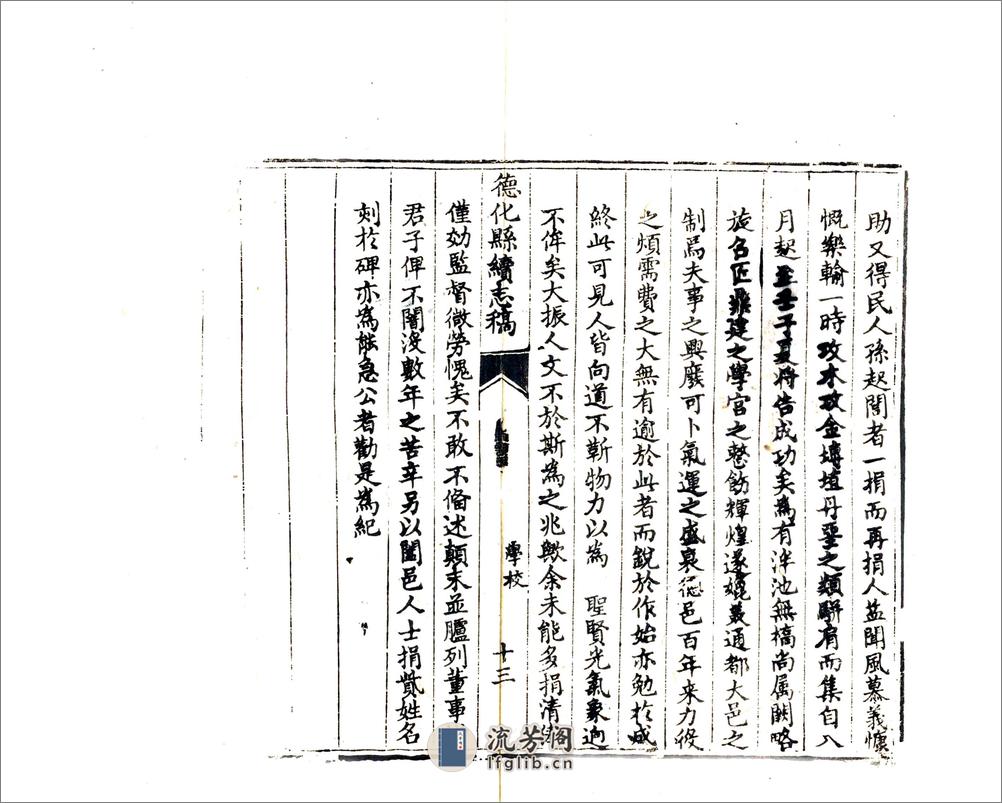 助又得民人孫起誾者一捐而再捐人益聞風慕義慷
慨樂輸一時攻木攻金塼埴丹堊之類駢肩而集自八
月起至壬子夏將告成功矣為有泮池無槁尚属闕略
旋名匠鼎建之學宮之整飭輝煌遂媲羙通都大邑之
制焉夫事之興廢可卜氣運之盛衰從邑百年来力役
之煩需費之大無有逾於此者而銳於作始亦勉於成
終此可見人皆向道不靳物力以為 聖賢光氣象迥
不侔矣大振人文不於斯為之兆歟余未能多捐清
德化縣續志稿 學校 十三
僅効監督微勞愧矣不敢不俻述顛末並臚列董事
君子俾不闇沒數年之苦辛另以闔邑人士捐貲姓名
刻於碑亦為能急公者勸是為紀
流芳阁
lfglib.cn